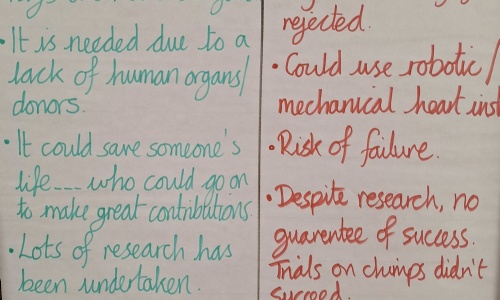 • It is needed due to a
lack of human organs/
donors.
• It could save someone's
life... who could go on
to make great contributions.
• Lots of research has
been undertaken.
rejected.
• Could use robotic/
mechanical heart
• Risk of failure.
• Despite research, no
guarentee of success.
Trials on chimps didn't
succeed.